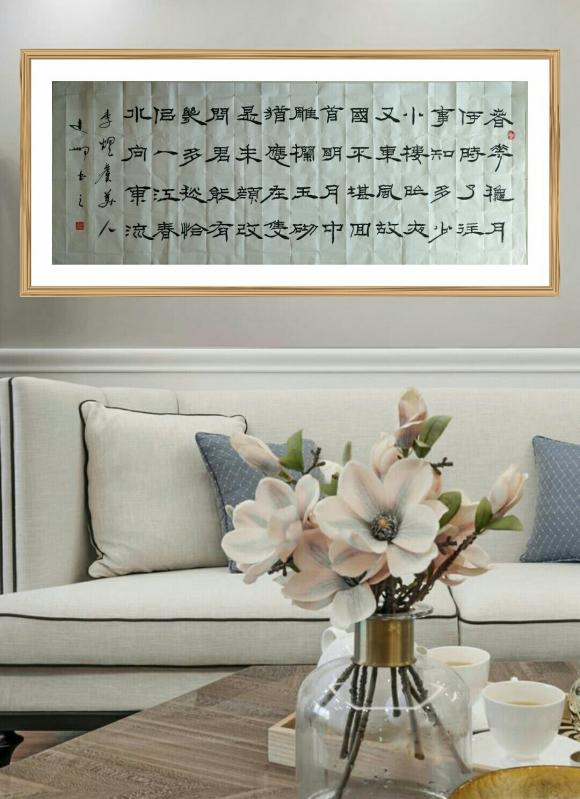 春華龝月
何時了往
事知多少
小樓昨夜
又東風故
國不堪回
首朙月中
雕欄玉砌
猶應在隻
是朱顏改
問君能有
幾多愁恰
佀一江春
水向東流
李煜虞美人